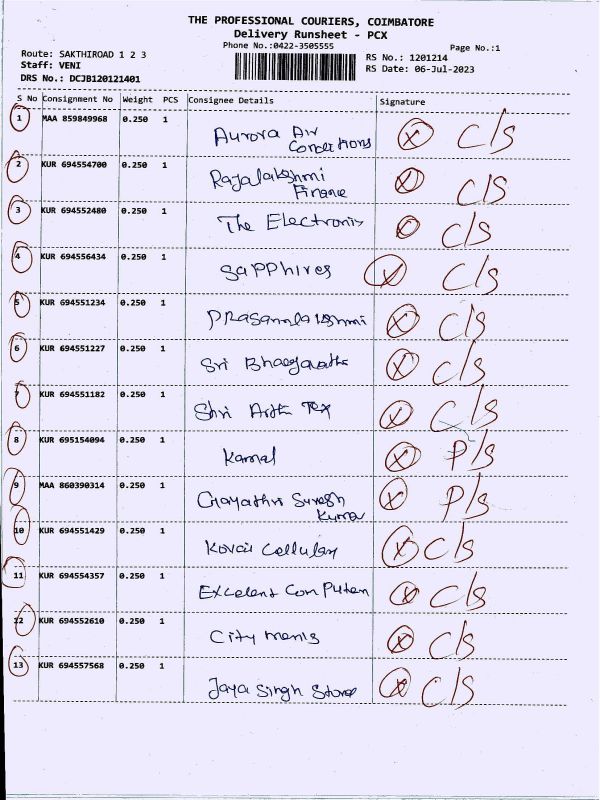 THE PROFESSIONAL COURIERS, COIMBATORE
Delivery Runsheet - PCX
Phone No.:0422-3505555
Page No.:1
Route: SAKTHIROAD 1 2 3
Staff: VENI
DRS No.: DCJB120121401
RS No.: 1201214
RS Date: 06-Jul-2023
S No Consignment No Weight PCS Consignee Details Signature
1 MAA 859849968 0.250 1 Aurora Air Conditions C/S
2 KUR 694554700 0.250 1 Rajalakshmi Finance C/S
3 KUR 694552480 0.250 1 The Electronis C/S
4 KUR 694556434 0.250 1 Sapphires C/S
5 KUR 694551234 0.250 1 Prasannalakshmi C/S
6 KUR 694551227 0.250 1 Sri C/S
7 KUR 694551182 0.250 1 Shri Tex C/S
8 KUR 695154094 0.250 1 Kamal P/S
9 MAA 860390314 0.250 1 Gayathri Suresh Kumar P/S
10 KUR 694551429 0.250 1 Kovai Cellular C/S
11 KUR 694554357 0.250 1 Excelent Computer C/S
12 KUR 694552610 0.250 1 City mens C/S
13 KUR 694557568 0.250 1 Jaya Singh Store C/S